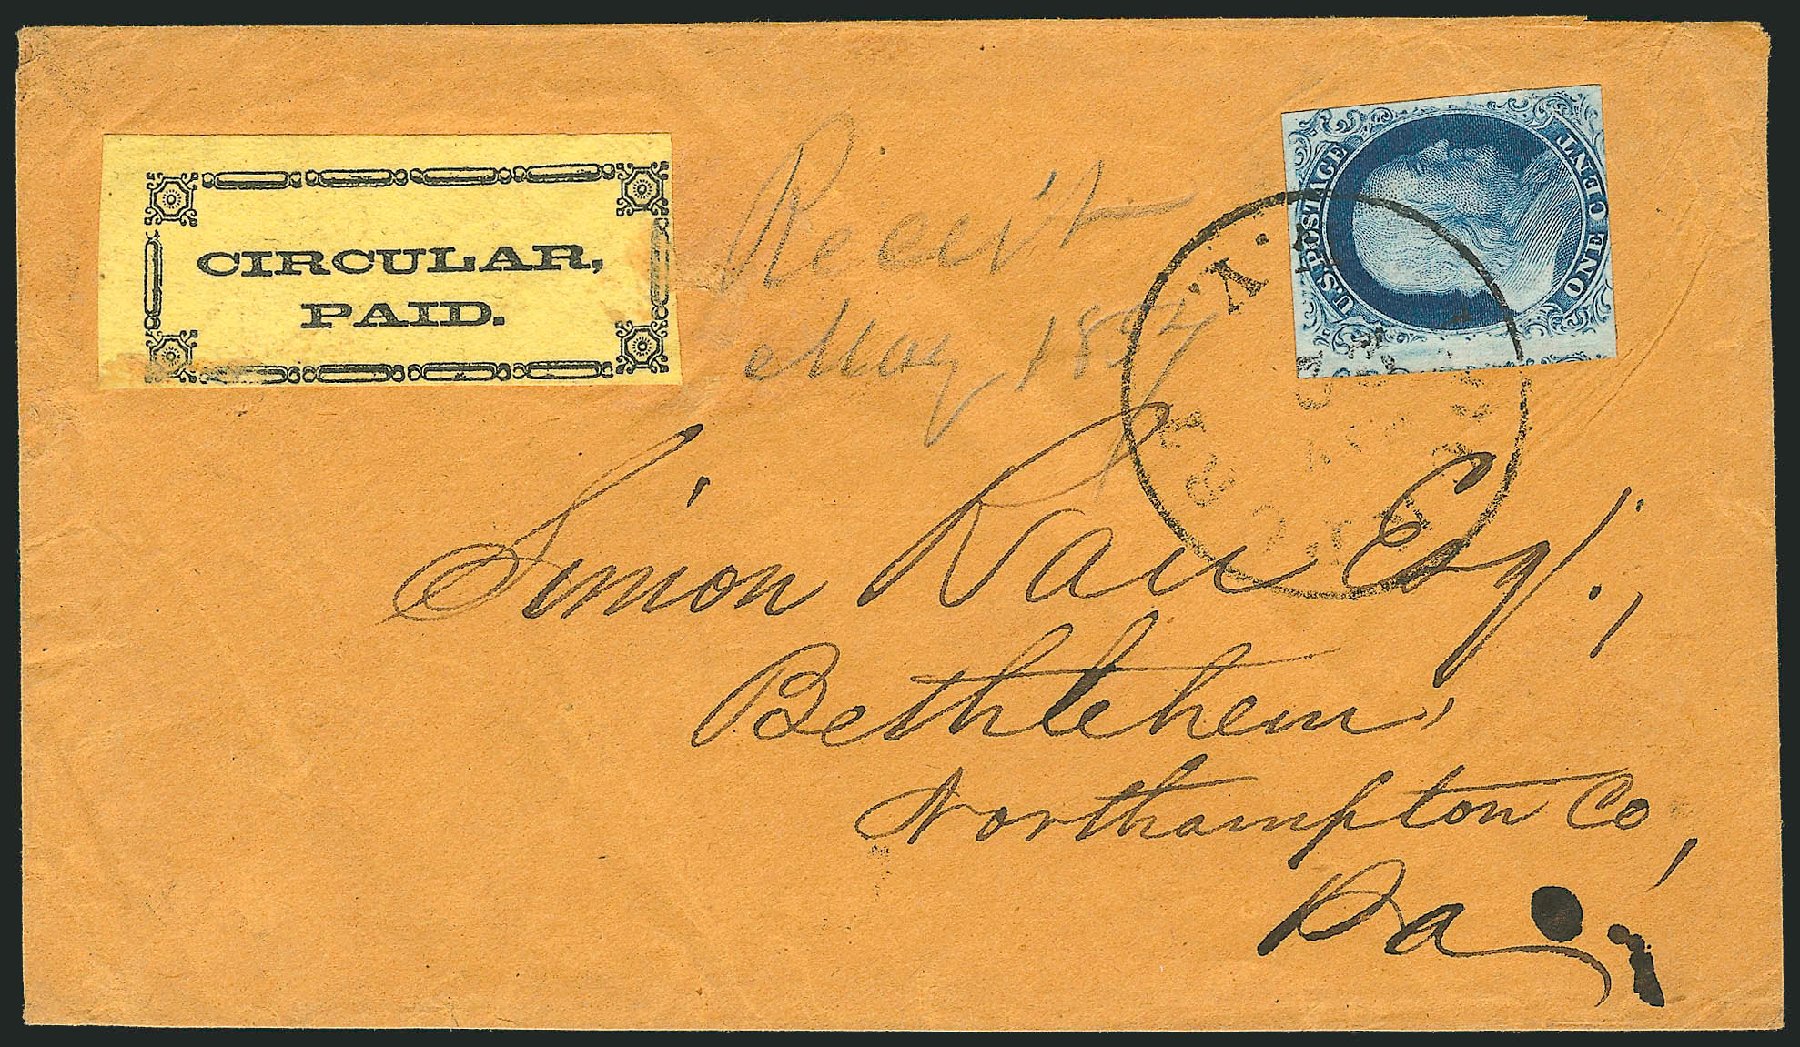 CIRCULAR,
PAID.
U.S. POSTAGE
ONE CENT
Receit
May 1852
Simon Rau Esq.,
Bethlehem,
Northampton Co,
Pa